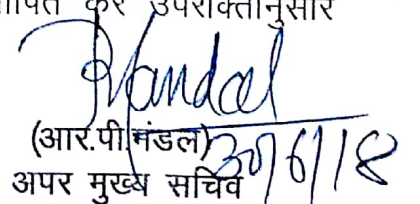 कर उपरोक्तानुसार
Mandal
(आर.पी.मंडल) 30/6/18
अपर मुख्य सचिव